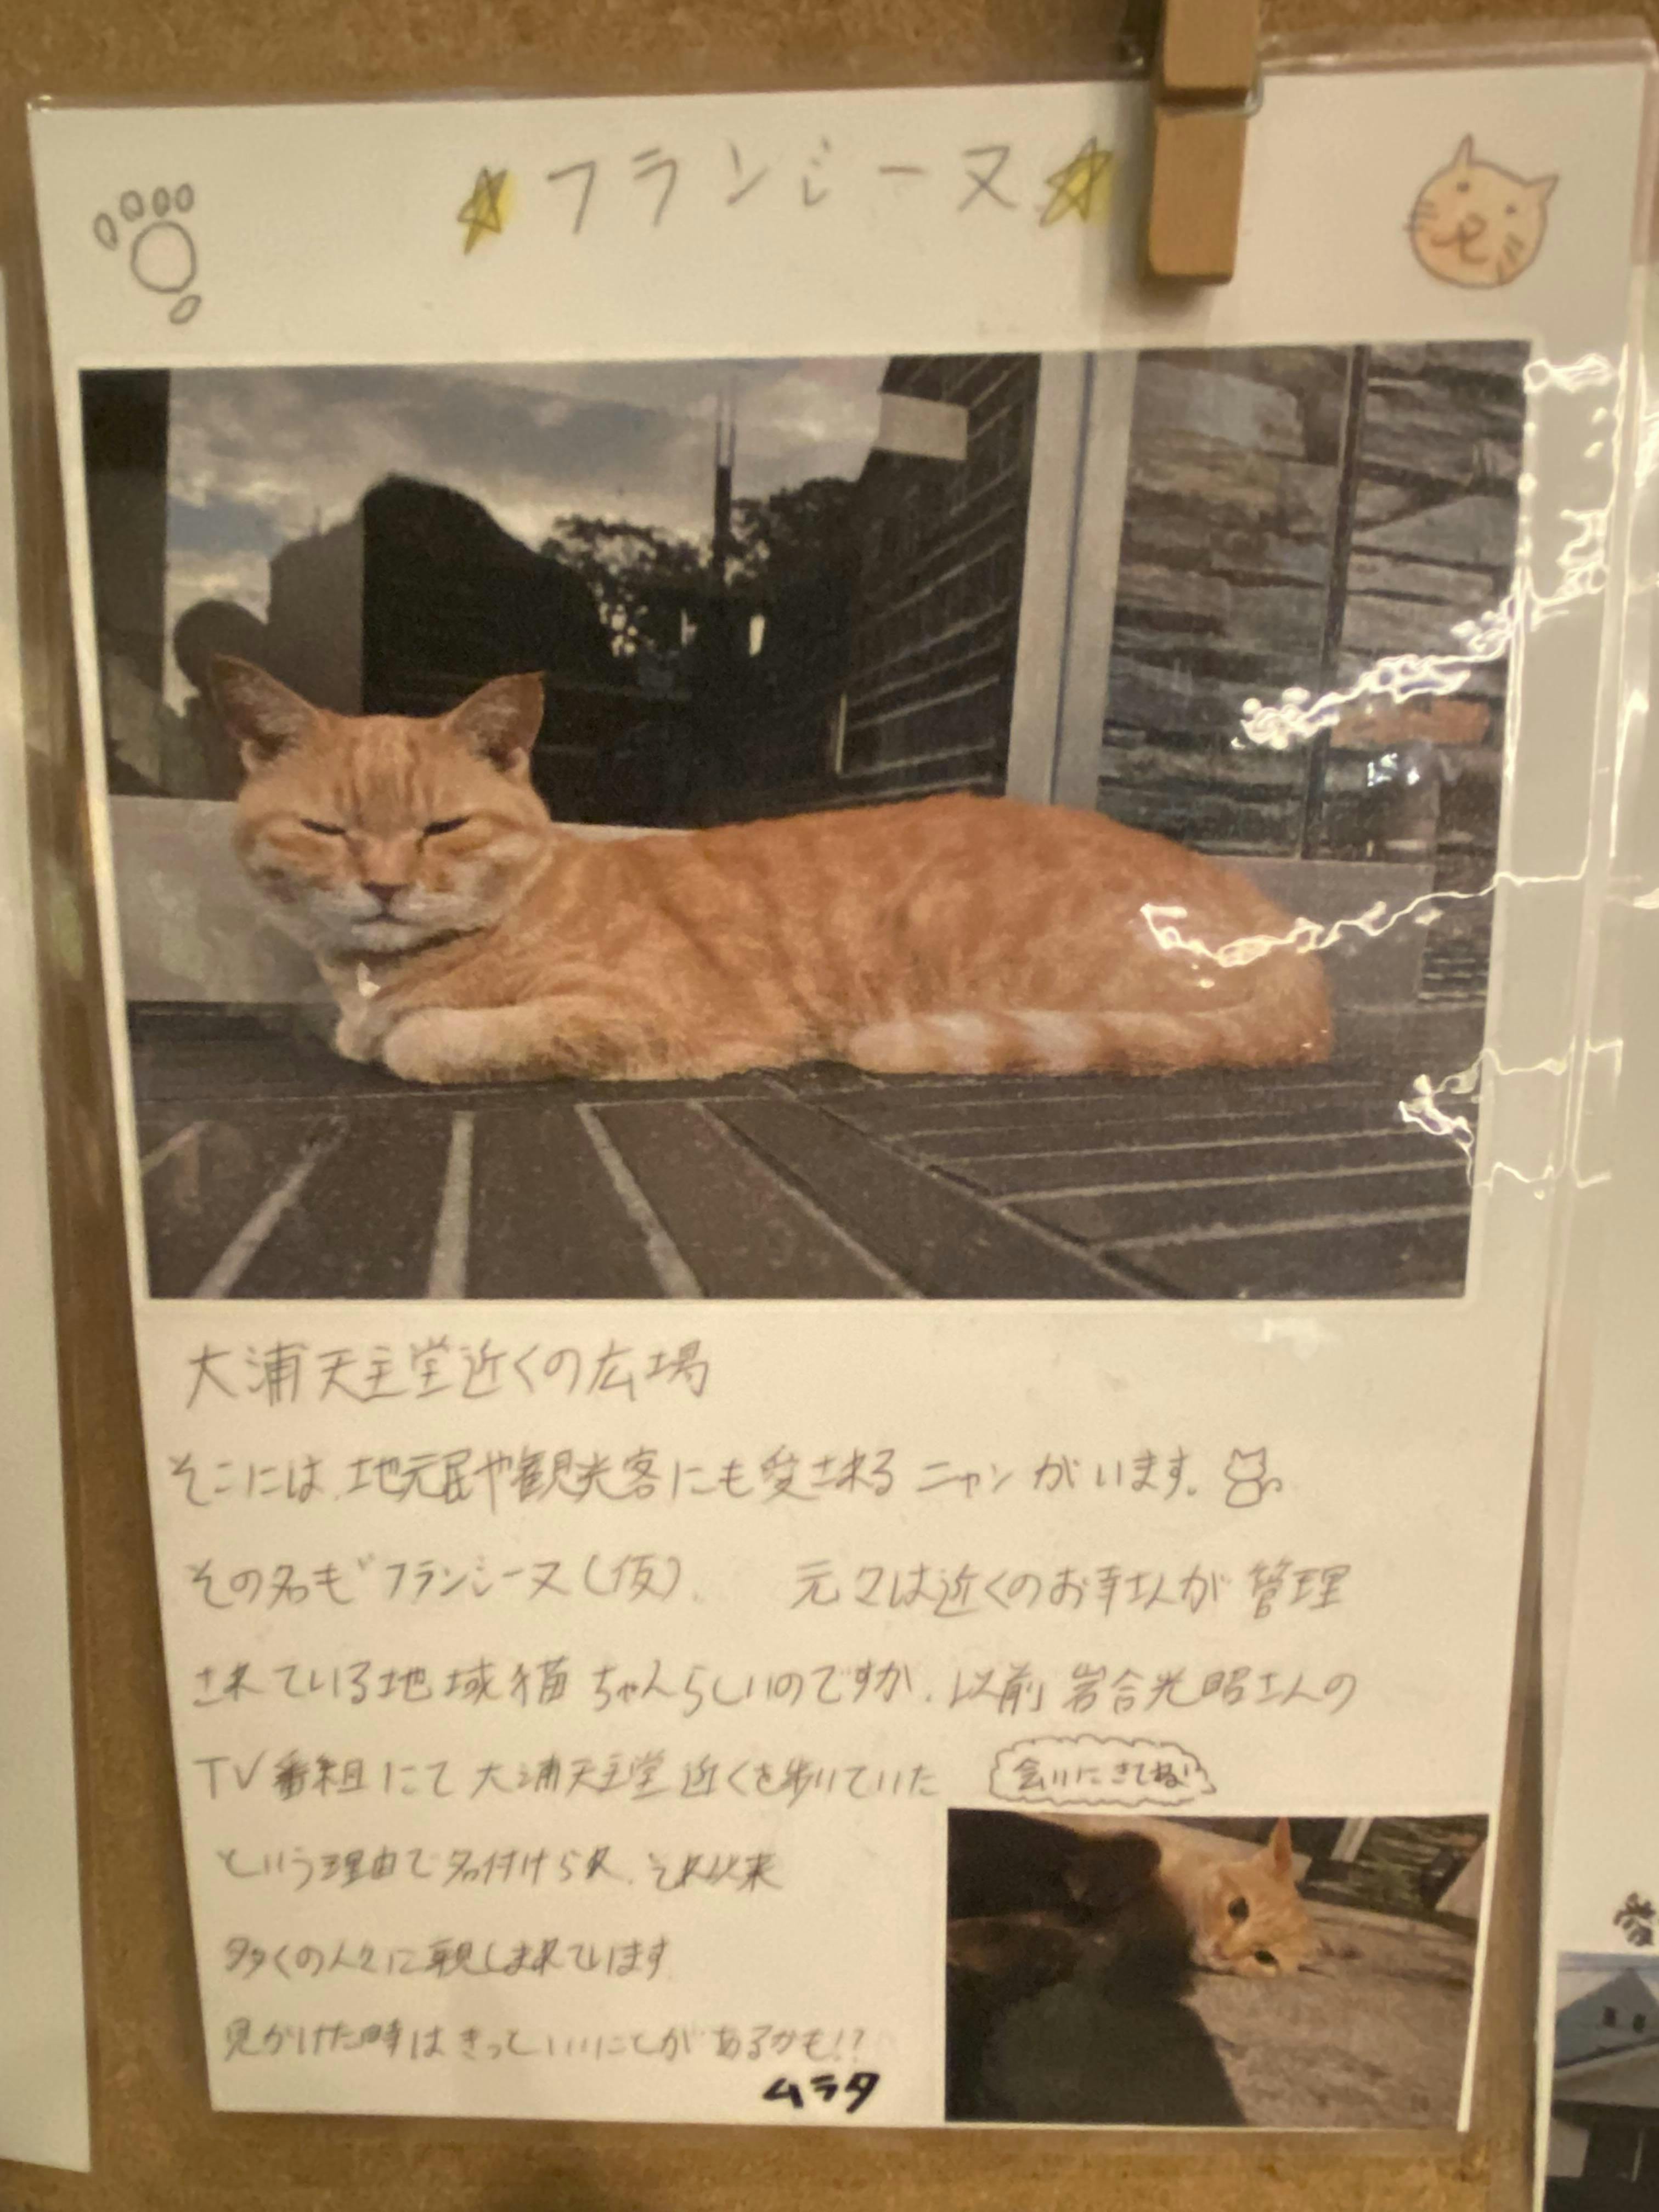 ☆フランシーヌ☆
大浦天主堂近くの広場
そこには、地元民や観光客にも愛されるニャンがいます。
その名も"フランシーヌ(仮)、元々は近くのお寺さんが管理
されている地域猫ちゃんらしいのですが、以前岩合光昭さんの
TV番組にて大浦天主堂近くを歩いていた
会いにきてね!
という理由で名付けられ、それ以来
多くの人々に親しまれています
見かけた時はきっといいことがあるかも!?
ムラタ